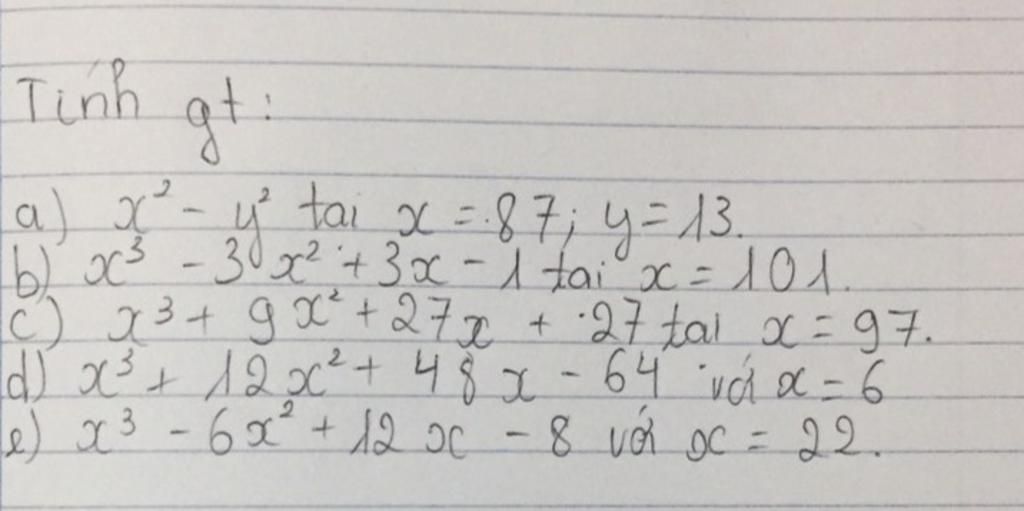 Tính gt:
a) x² - y² tai x = 87; y = 13.
b) x³ - 3x² + 3x - 1 tai x = 101.
c) x³ + 9x² + 27x + 27 tai x = 97.
d) x³ + 12x² + 48x - 64 với x = 6
e) x³ - 6x² + 12x - 8 với x = 22.